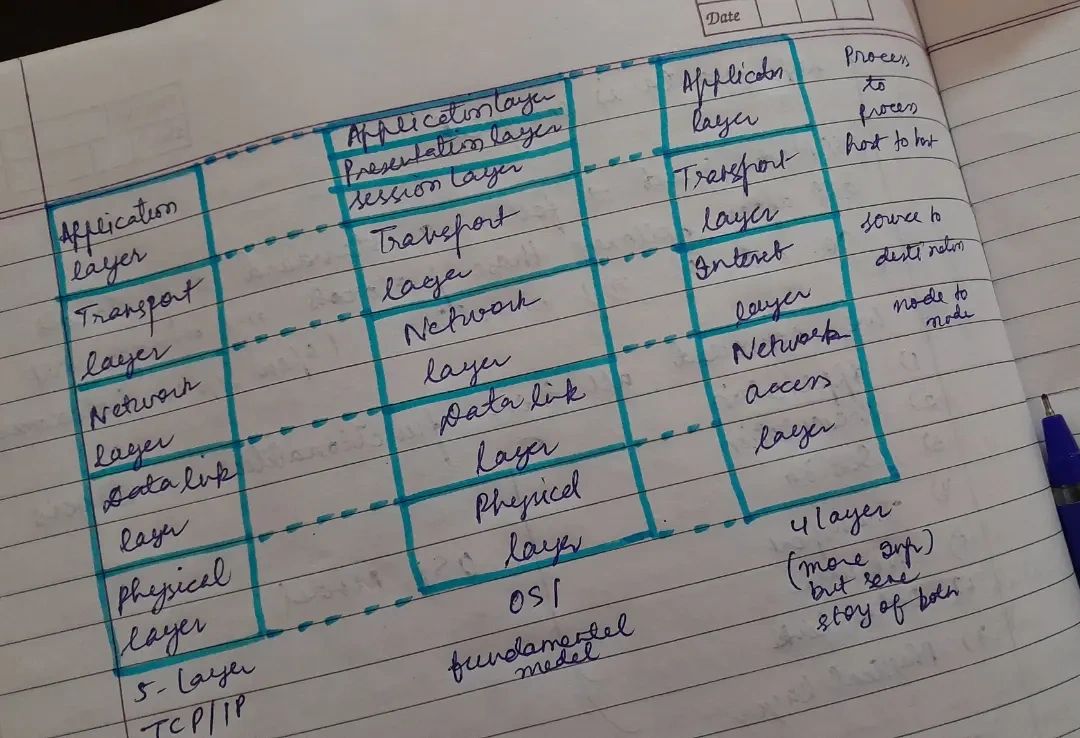 Date
Application
layer
Transport
layer
Network
layer
Data link
layer
Physical
layer
5-Layer
TCP/IP
Application layer
Presentation layer
session layer
Transport
layer
Network
layer
Data link
layer
Physical
layer
OSI
fundamental
model
Application
layer
Transport
layer
Internet
layer
Network
access
layer
4 layer
(more Imp)
but
of both
Process
to
process
host to host
source to
destination
node to
node